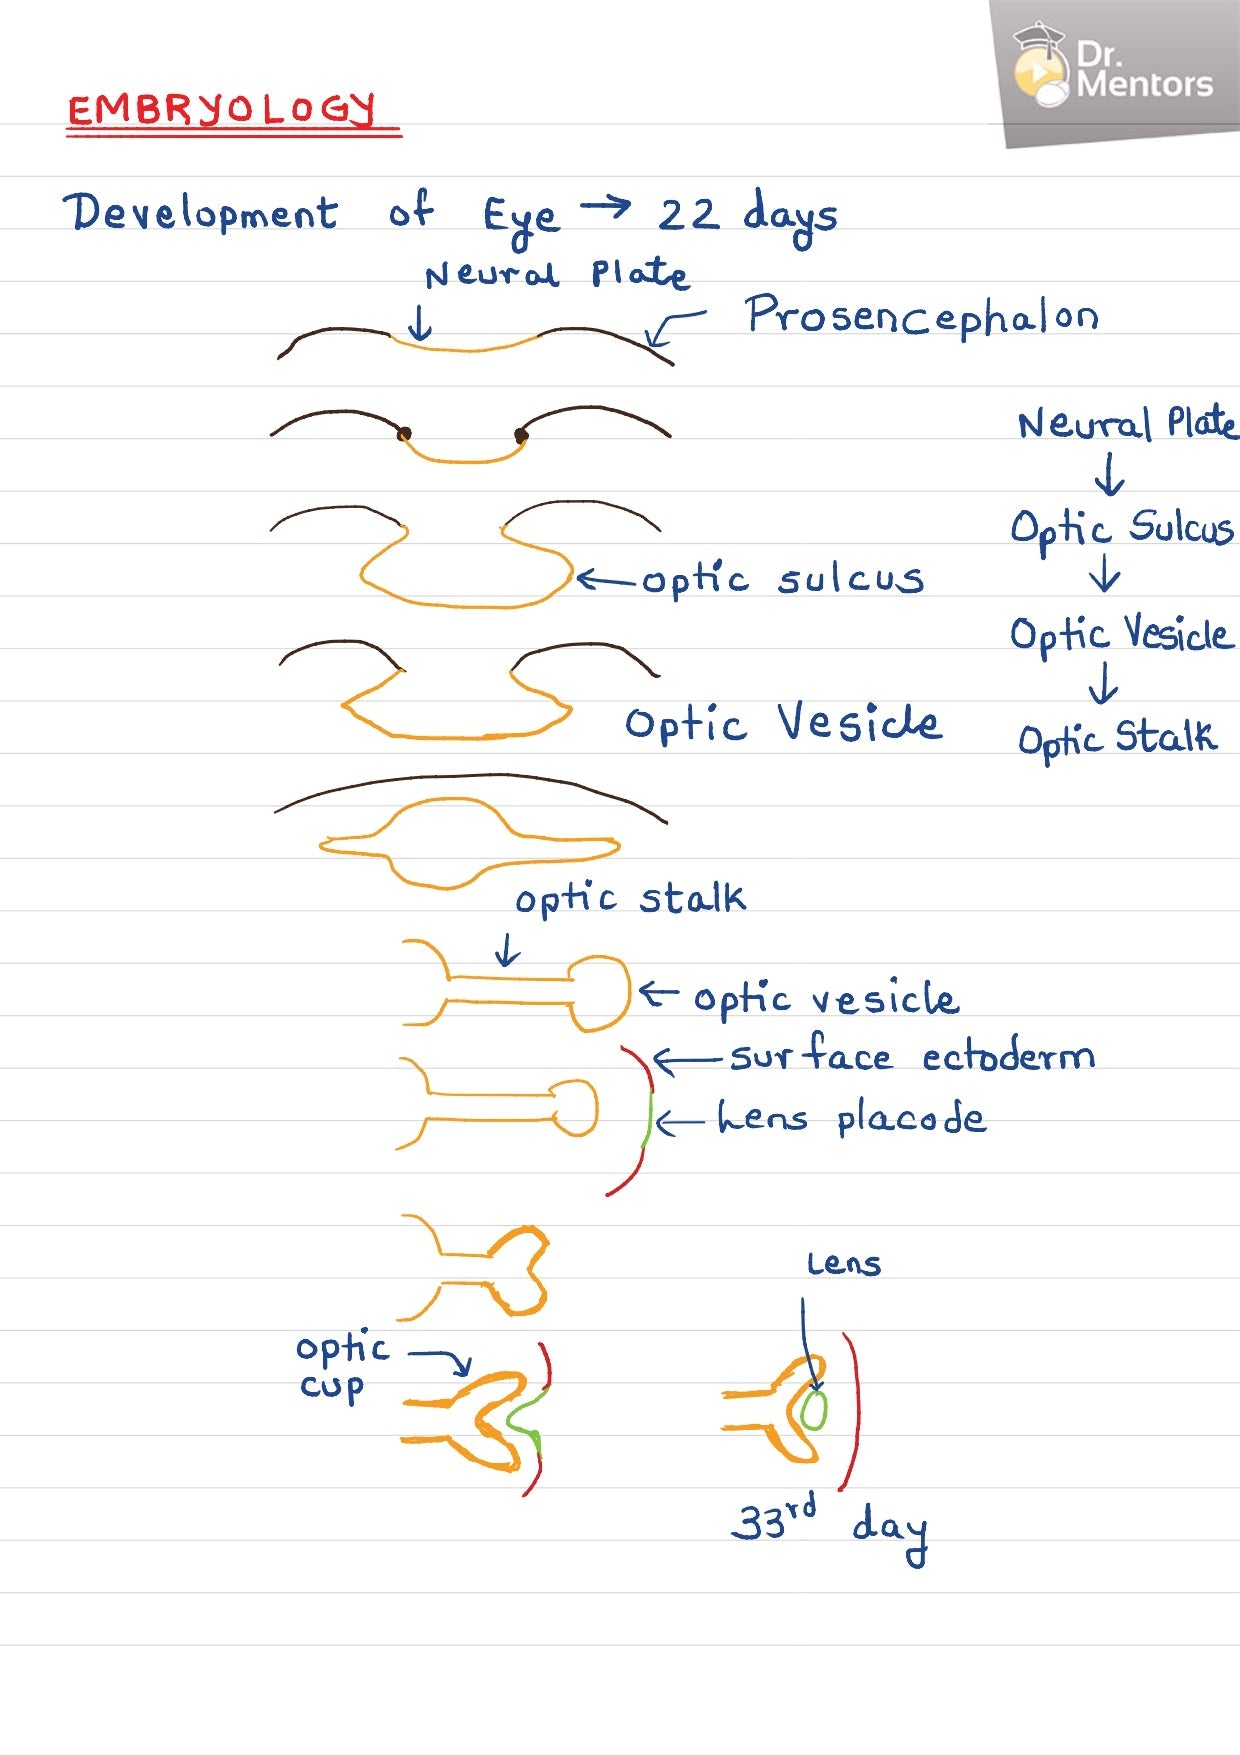 Dr.
Mentors
EMBRYOLOGY
Development of Eye → 22 days
Neural Plate
Prosencephalon
Neural Plate
↓
Optic Sulcus
↓
Optic Vesicle
↓
Optic Stalk
optic sulcus
Optic Vesicle
optic stalk
optic vesicle
surface ectoderm
Lens placode
Lens
optic
cup
33rd day